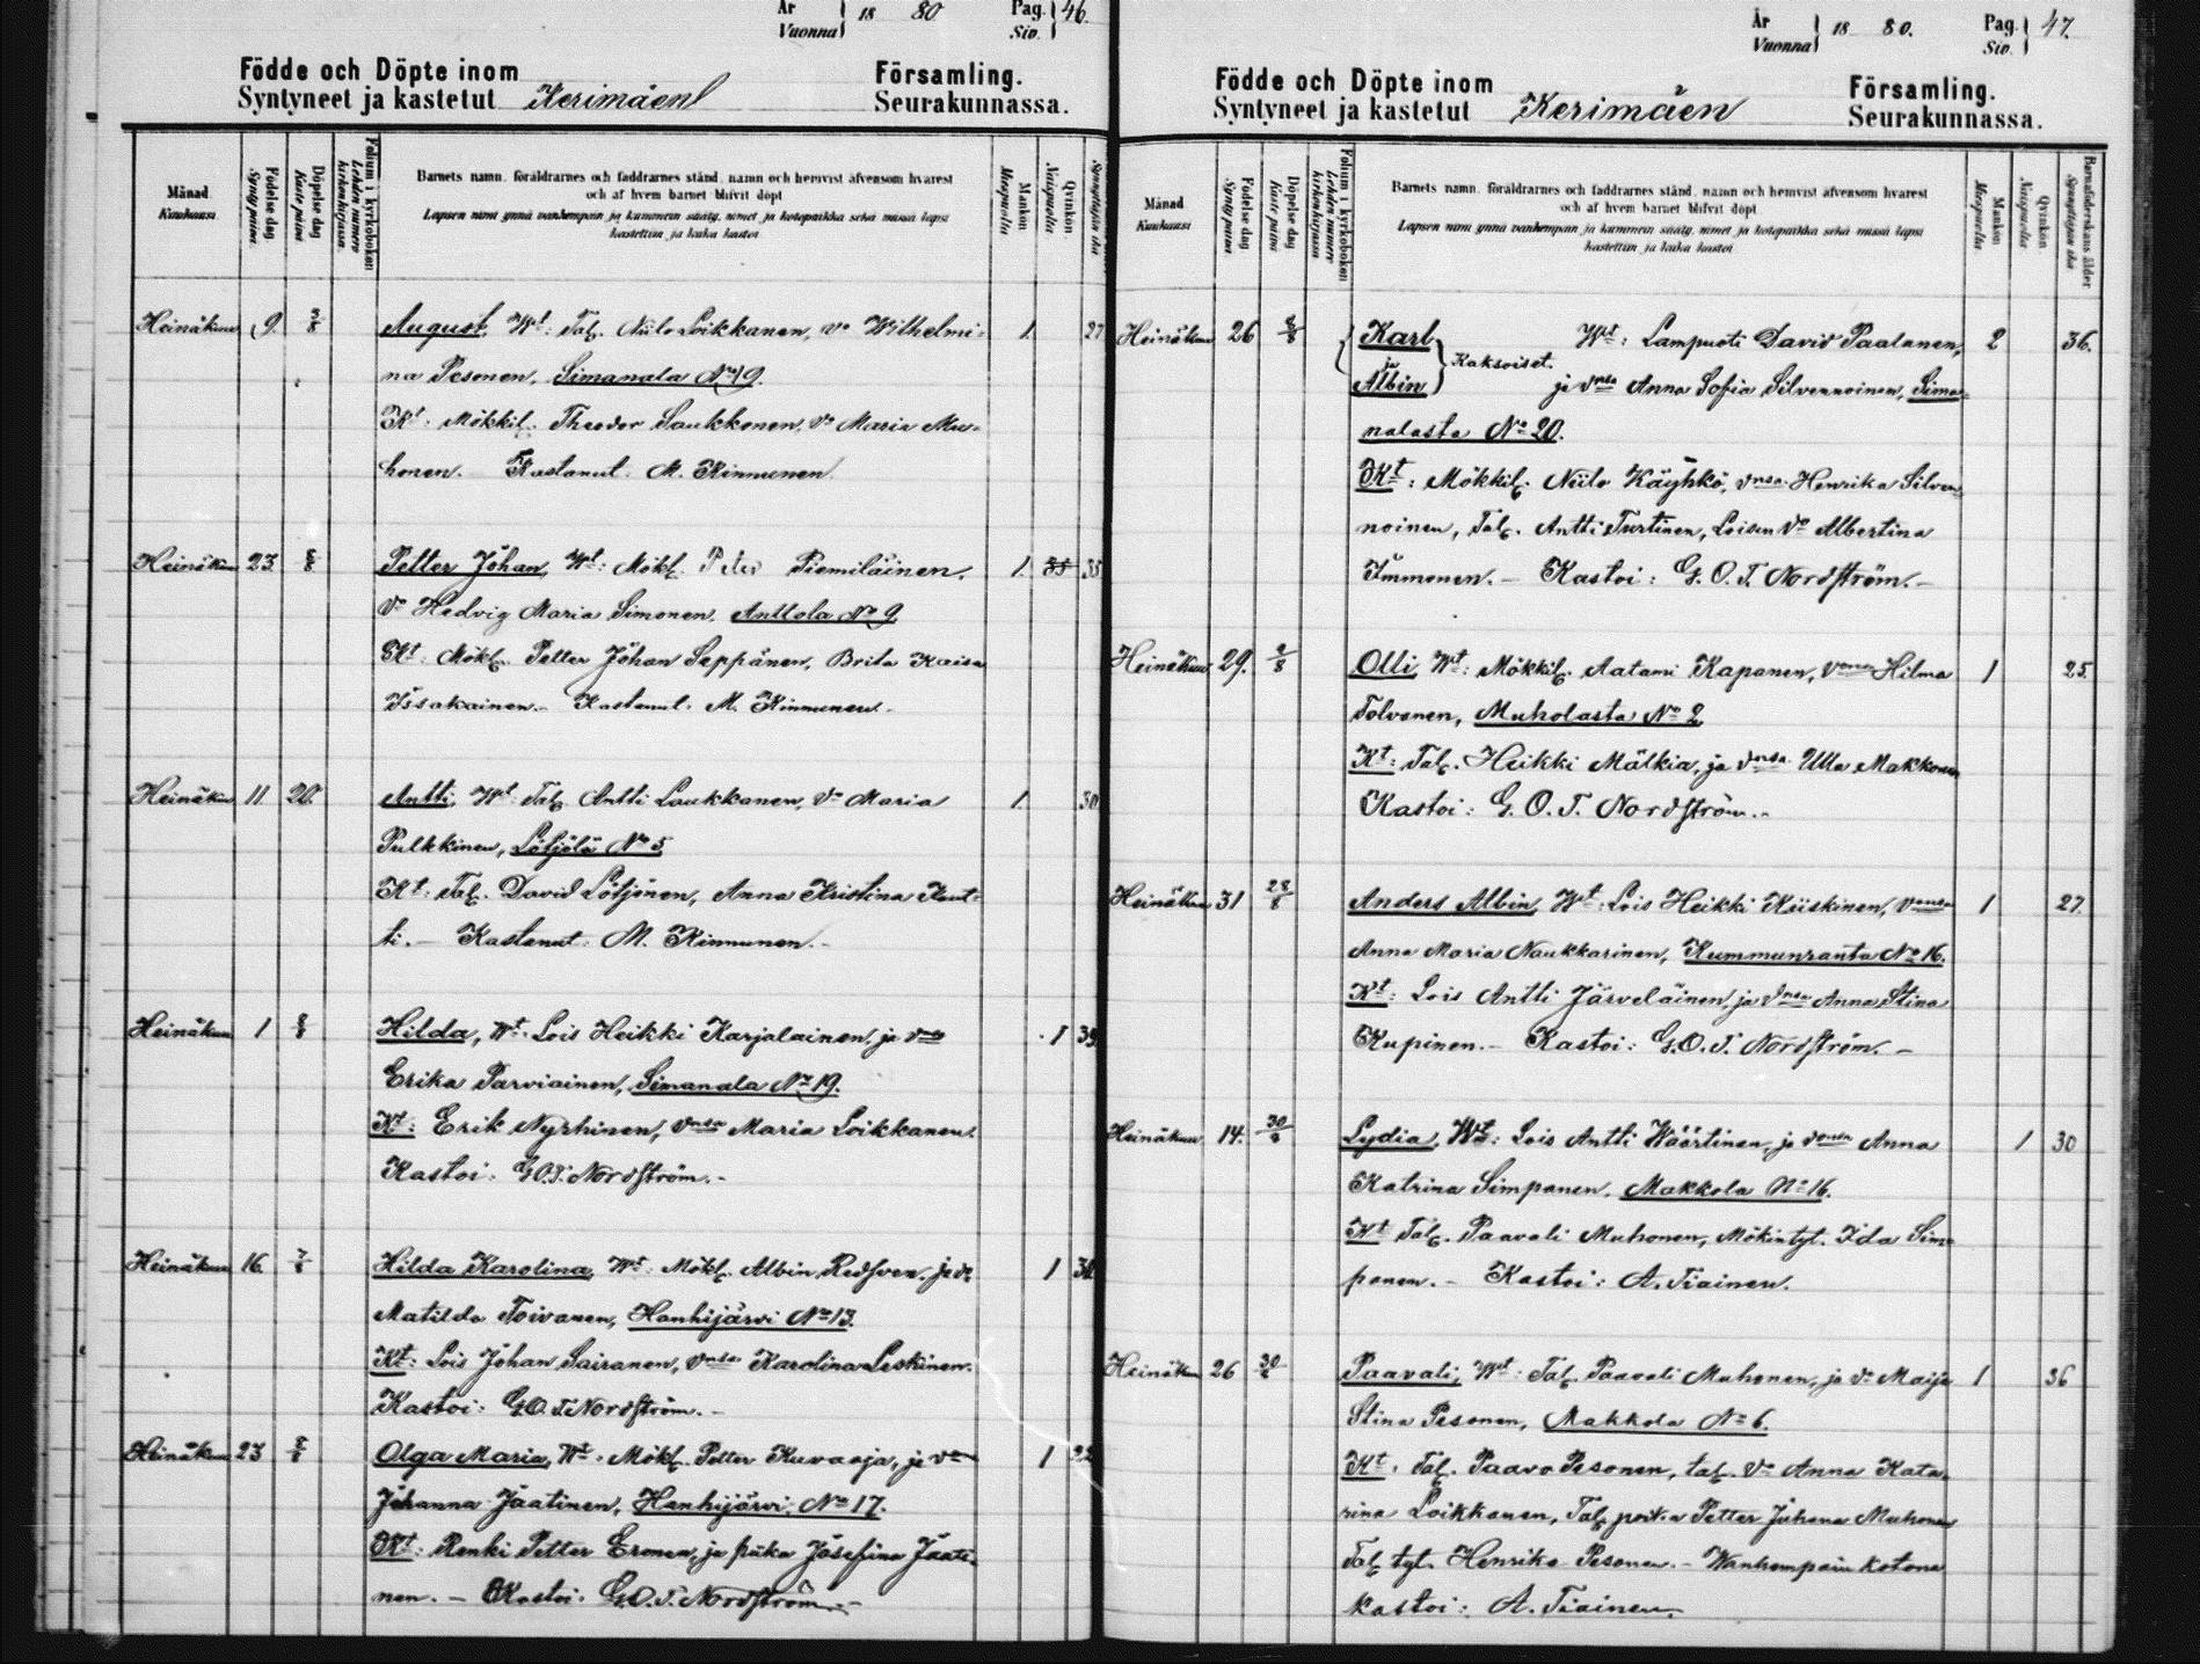 År Vuonna 18 80 Pag. Siv. 46.
Födde och Döpte inom Församling.
Syntyneet ja kastetut Kerimäen Seurakunnassa.
Månad Kuukausi
Födelse dag Synty päivä
Döpelse dag Kaste päivä
Folium i kyrkoboken Lehden numero kirkonkirjassa.
Barnets namn, föräldrarnes och faddrarnes stånd, namn och hemvist äfvensom hvarest
och af hvem barnet blifvit döpt
Lapsen nimi ynnä vanhempain ja kummein sääty, nimet ja kotopaikka sekä missä lapsi
kastettiin ja kuka kastoi
Mankön Miespuolia
Qvinkön Naispuolia
Heinäkuu 9. 3/8 August, Wt: Tal. Niilo Loikkanen, vo Wilhelmi- 1. 27
na Pesonen, Simanala No 19.
Kt: Mökkil. Theodor Saukkonen, vo Maria Mu-
honen. Kastanut. M. Kinnunen.
Heinäkuu 23. 8/8 Petter Johan, Wt: Mökl. Piemiläinen, 1. 35 35
vo Hedvig Maria Simonen, Anttola No 9.
Kt: Mökl. Petter Johan Seppänen, Brita Kaisa
Issakainen. - Kastanut. M. Kinnunen.
Heinäkuu 11 20. Antti, Wt: Tal. Antti Laukkanen, vo Maria 1. 30
Pulkkinen, Lötjölä No 5
Kt: Tal. David Lötjönen, Anna Kristina Kaut-
ti. - Kastanut: M. Kinnunen. -
Heinäkuu 1 8/8 Hilda, Wt: Lois Heikki Karjalainen, ja vmsa 1 39
Erika Parviainen, Simanala No 19.
Kt: Erik Nyrhinen, vmsa Maria Loikkanen.
Kastoi: G.O.T. Nordström. -
Heinäkuu 16. 7/8 Hilda Karolina, Wt: Mökl. Albin Redsven, ja vo 1
Matilda Toivanen, Hanhijärvi No 13.
Kt: Lois Johan Sairanen, vmsa Karolina Leskinen.
Kastoi: G.O.T. Nordström. -
Heinäkuu 23 8/8 Olga Maria, Wt: Mökl. Petter Kuvaaja, ja vo 1 22
Johanna Jaatinen, Hanhijärvi, No 17.
Kt: Renki Petter Eronen, ja piika Josefina Jaati-
nen. - Kastoi: G.O.T. Nordström. -
År Vuonna 18 80. Pag. Siv. 47.
Födde och Döpte inom Församling.
Syntyneet ja kastetut Kerimäen Seurakunnassa.
Månad Kuukausi
Födelse dag Synty päivä
Döpelse dag Kaste päivä
Folium i kyrkoboken Lehden numero kirkonkirjassa
Barnets namn, föräldrarnes och faddrarnes stånd, namn och hemvist äfvensom hvarest
och af hvem barnet blifvit döpt
Lapsen nimi ynnä vanhempain ja kummein sääty, nimet ja kotopaikka sekä missä lapsi
kastettiin ja kuka kastoi
Mankön Miespuolia
Qvinkön Naispuolia
Barnaföderskans ålder Synnyttäjän ikä
Heinäkuu 26 8/8 Karl Wt: Lampuoti David Paalanen, 2 36.
ja Kaksoiset.
Albin ja vmsa Anna Sofia Silvennoinen, Sima-
nalasta No 20.
Kt: Mökkil. Niilo Käyhkö, vmsa Henrika Silven-
noinen, Tal. Antti Turtinen, Loisen vo Albertina
Immonen. - Kastoi: G.O.T. Nordström. -
Heinäkuu 29. 2/8 Olli, Wt: Mökkil. Aatami Kapanen, vmsa Hilma 1 25.
Tolvanen, Muholasta No 2
Kt: Tal. Heikki Mälkia, ja vmsa Ulla Makkonen
Kastoi: G.O.T. Nordström. -
Heinäkuu 31 28/8 Anders Albin, Wt: Lois Heikki Kiiskinen, vmsa 1 27.
Anna Maria Naukkarinen, Kummunranta No 16.
Kt: Lois Antti Järveläinen, ja vmsa Anna Stina
Kupinen. - Kastoi: G.O.T. Nordström. -
Heinäkuu 14. 30/8 Lydia, Wt: Lois Antti Wäärtinen, ja vmsa Anna 1 30
Katrina Simpanen. Makkola No 16.
Kt Tal. Paavali Muhonen, Mökintyt. Ida Sim-
panen. - Kastoi: A. Tiainen.
Heinäkuu 26 Paavali, Wt: Tal. Paavali Muhonen, ja vo Maija 1 36
Stina Pesonen, Makkola No 6.
Kt. Tal. Paavo Pesonen, tal. vo Anna Kata-
rina Loikkanen, Tal. poika Petter Juhana Muhonen
Tal. tyt. Henrika Pesonen. - Wanhempain kotona
kastoi: A. Tiainen.